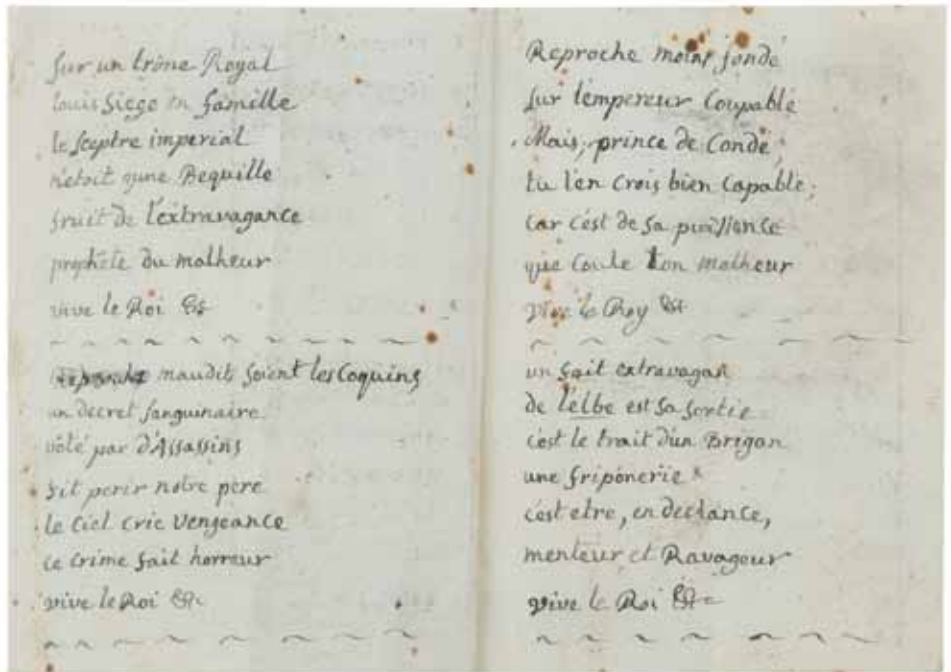 sur un trône Royal
louis siege en famille
le sceptre imperial
n'etoit qune Bequille
fruit de l'extravagance
prophete du malheur
vive le Roi &c
maudits soient les Coquins
un decret sanguinaire
voté par d'Assassins
fit perir notre pere
le Ciel crie vengeance
ce crime fait horreur
vive le Roi &c
Reproche moins fondé
sur l'empereur Coupable
Mais, prince de Condé,
tu l'en crois bien capable;
car c'est de sa puissance
que coule ton malheur
vive le Roy &c
un fait extravagan
de l'elbe est sa sortie
c'est le trait d'un Brigan
une friponerie
c'est etre, en
menteur et Ravageur
vive le Roi &c